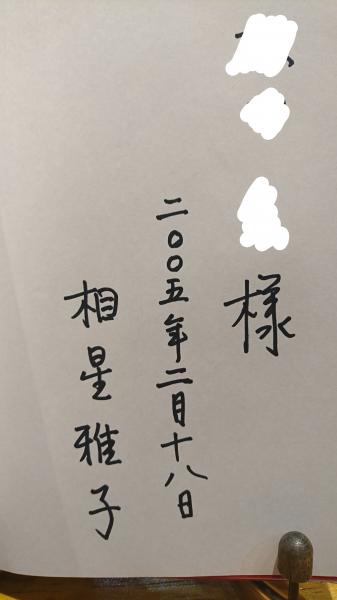 様
二〇〇五年二月十八日
相星雅子